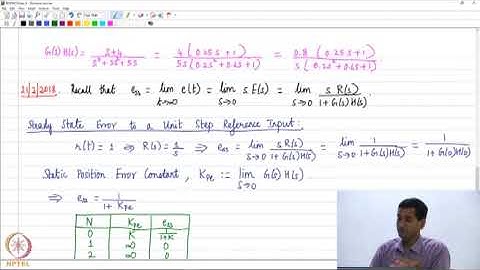 G(s)H(s) = (s+4)/(s³+3s²+5s) = 4(0.25s+1)/(5s(0.2s²+0.6s+1)) = 0.8(0.25s+1)/(s(0.2s²+0.6s+1))
21/2/2018. Recall that e_ss = lim_{t→∞} e(t) = lim_{s→0} s E(s) = lim_{s→0} s R(s)/(1+G(s)H(s)).
Steady State Error to a Unit Step Reference Input:
r(t) = 1 ⇒ R(s) = 1/s ⇒ e_ss = lim_{s→0} s R(s)/(1+G(s)H(s)) = lim_{s→0} 1/(1+G(s)H(s)) = 1/(1+G(0)H(0))
Static Position Error Constant, K_pe := lim_{s→0} G(s)H(s).
⇒ e_ss = 1/(1+K_pe)
N K_pe e_ss
0 K 1/(1+K)
1 ∞ 0
2 ∞ 0
NPTEL